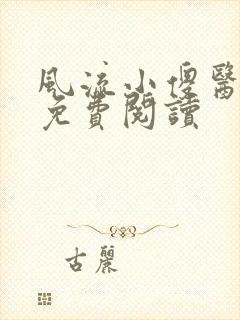 風流小傻醫
免費閱讀
古麗